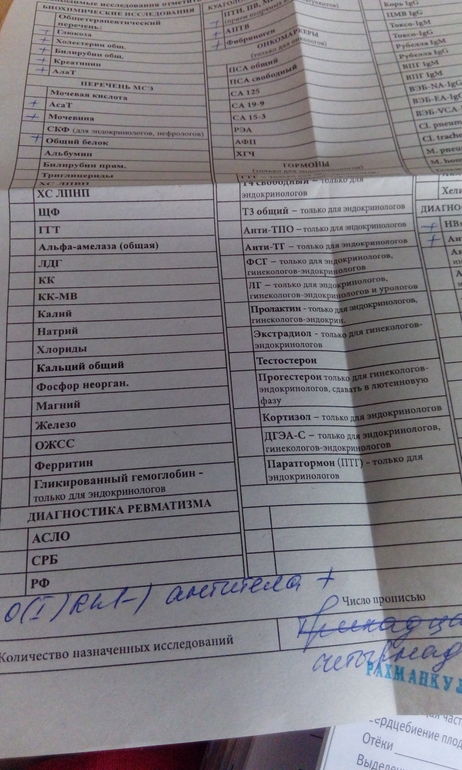 БИОХИМИЧЕСКИЕ ИССЛЕДОВАНИЯ
Общетерапевтический
перечень:
+ Глюкоза
+ Холестерин общ.
+ Билирубин общ.
+ Креатинин
+ АлаТ
ПЕРЕЧЕНЬ МСЭ
Мочевая кислота
+ АсаТ
+ Мочевина
СКФ (для эндокринологов, нефрологов)
+ Общий белок
Альбумин
Билирубин прям.
Триглицериды
ХС ЛПНП
ЩФ
ГГТ
Альфа-амелаза (общая)
ЛДГ
КК
КК-МВ
Калий
Натрий
Хлориды
Кальций общий
Фосфор неорган.
Магний
Железо
ОЖСС
Ферритин
Гликированный гемоглобин -
только для эндокринологов
ДИАГНОСТИКА РЕВМАТИЗМА
АСЛО
СРБ
РФ
АПТВ
Фибриноген
ОНКОМАРКЕРЫ
ПСА общий
ПСА свободный
СА 125
СА 19-9
СА 15-3
РЭА
АФП
ХГЧ
ГОРМОНЫ
Т4 свободный - только для
эндокринологов
Т3 общий – только для эндокринологов
Анти-ТПО – только для эндокринологов
Анти-ТГ – только для эндокринологов
ФСГ – только для эндокринологов,
гинекологов-эндокринологов
ЛГ – только для эндокринологов,
гинекологов-эндокринологов и урологов
Пролактин - только для эндокринологов,
гинекологов-эндокрин.
Экстрадиол - только для гинекологов-
эндокринологов
Тестостерон
Прогестерон только для гинекологов-
эндокринологов, сдавать в лютеиновую
фазу
Кортизол – только для эндокринологов
ДГЭА-С – только для эндокринологов,
гинекологов-эндокринологов
Паратгормон (ПТГ) - только для
эндокринологов
ЦМВ IgG
Токсо-IgM
Токсо-IgG
Рубелла IgM
Рубелла IgG
ВПГ IgM
ВПГ IgM
ВЭБ-NA-IgG
ВЭБ-EA-IgG
ВЭБ-VCA-
Cl. pneum
Cl. trach
M. pneu
M. hom
Хели
ДИАГНО
0(I) Rh(-) антитела +
Число прописью
Количество назначенных исследований
РАХМАНКУЛ
Сердцебиение плод
Отёки
Выделен